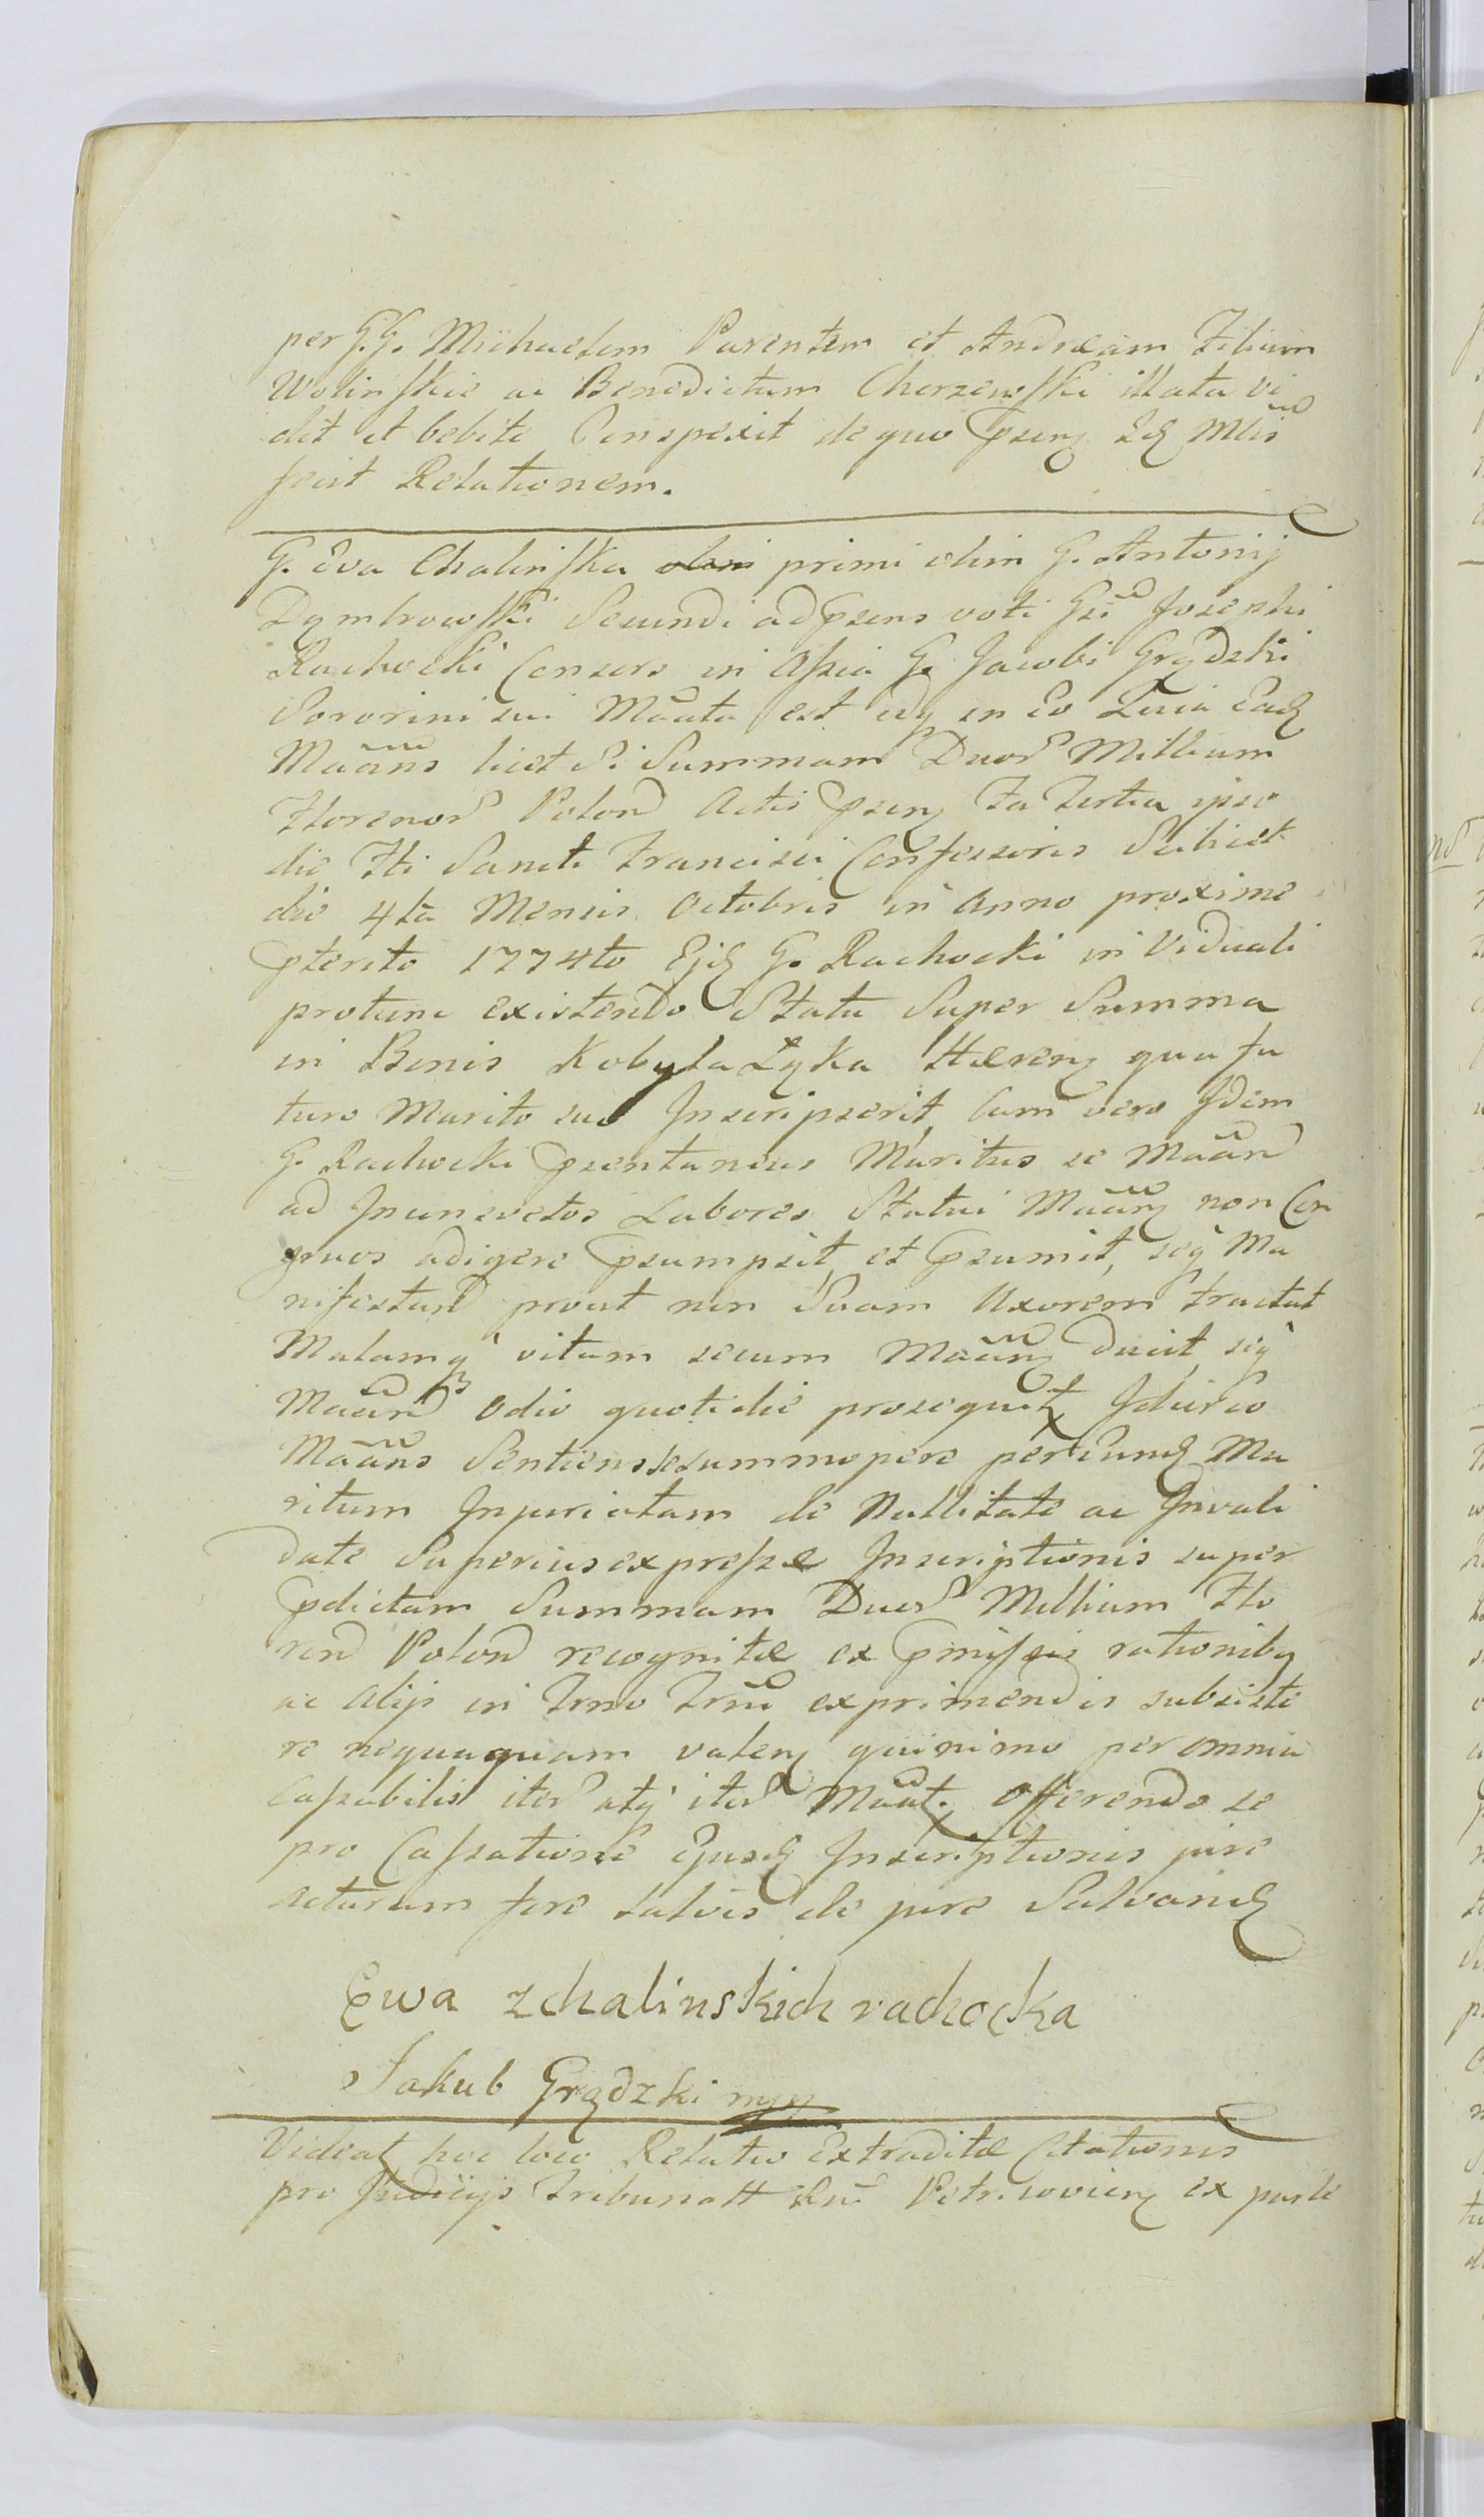 per G.G. Michaelem Parentem et Andream Filium
Wolinskie ac Benedictum Chorzewski illata vi
dit et bebite Conspexit de quo Psens Idq Mlis
fecit Relationem.
G. Eva Chalinska olim primi olim G. Antonij
Dymbrowski Secundi ad Psens voti Gsi Josephi
Rachocki Consors in Assia G. Jacobi Grądzki
Sororini sui Mãata est idq in eo Quia Eadq
Mãans licet Si Summam Duor Millium
Florenor Polon Actis Psenq Fa Tertia ipso
die Fti Sancti Francisci Confessoris Scilicet
die 4ta Mensis Octobris in Anno proxime
Pterito 1774to Ejdq G. Rachocki in Viduali
protunc existendo Statu Super Summa
in Bonis Kobyla Łąka Hæren qua fu
turo Marito suo Inscripserit, Cum vero Idem
G. Rachocki Psentaneus Maritus se Mãan
ad Inconsvetos Labores Statui Mãanq non Con
gruos adigere Psumpsit, et Psumit, seq Ma
nifestan prout non Suam Uxorem tractat
Malamq vitam secum Mãanq ducit seq
Mãan Odio quotidie prosequit Idcirco
Mãans Sentiens se summopere per eundq Ma
ritum Injuriatam de Nullitate ac Invali
date Superius expressæ Inscriptionis super
Pdictam Summam Duor Millium Flo
ren Polon recognitæ ex Pmissis rationibq
ac Alijs in Trno Trni exprimendis subsiste
re nequaquam valenq quinimo per omnia
Cassabilis iter atq iter Mãat. Offerendo se
pro Cassatione Ejusdq Inscriptionis jure
acturam fore salvis de jure Salvandq
Ewa z chalinskich rachocka
Jakub Grądzki mpp
Videat hoc loco Relatio Extraditæ Citationis
pro Judicijs Tribunall Rni Petricovienq ex parte